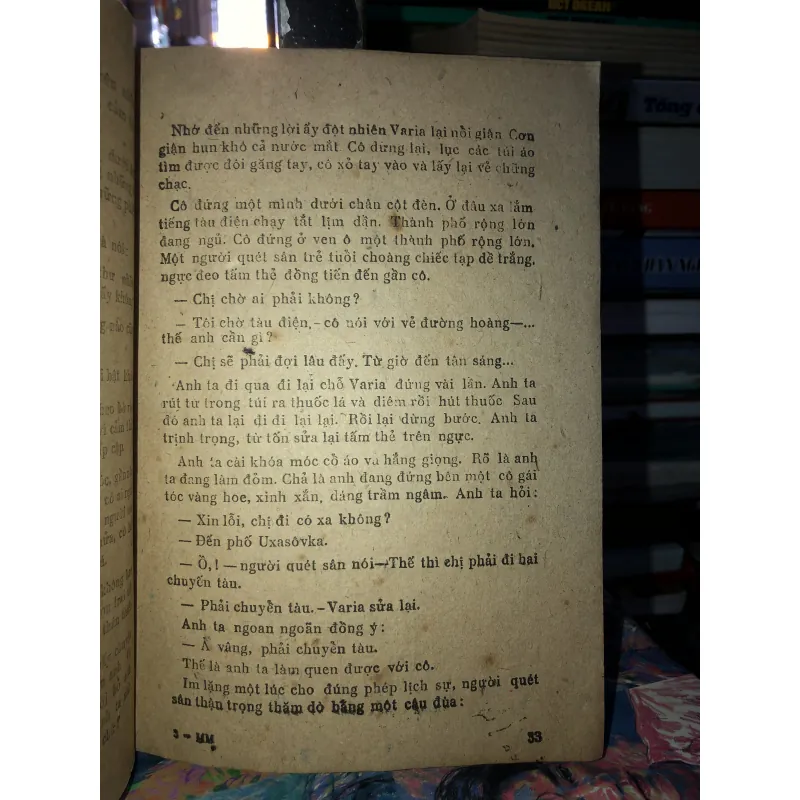 Nhớ đến những lời ấy đột nhiên Varia lại nổi giận Cơn
giận hun khô cả nước mắt Cô dừng lại, lục các túi áo
tìm được đôi găng tay, cô xỏ tay vào và lấy lại vẻ chững
chạc.
Cô đứng một mình dưới chân cột đèn. Ở đâu xa lắm
tiếng tàu điện chạy tắt lịm dần. Thành phố rộng lớn
đang ngủ. Cô đứng ở ven ô một thành phố rộng lớn.
Một người quét sân trẻ tuổi choàng chiếc tạp dề trắng,
ngực đeo tấm thẻ đồng tiến đến gần cô.
— Chị chờ ai phải không?
— Tôi chờ tàu điện,-cô nói với vẻ đường hoàng—...
thế anh cần gì?
— Chị sẽ phải đợi lâu đấy. Từ giờ đến tản sáng...
Anh ta đi qua đi lại chỗ Varia đứng vài lần. Anh ta
rút từ trong túi ra thuốc lá và diêm rồi hút thuốc Sau
đó anh ta lại đi đi lại lại. Rồi lại dừng bước. Anh ta
trịnh trọng, từ tốn sửa lại tấm thẻ trên ngực.
Anh ta cài khóa móc cổ áo và hắng giọng. Rõ là anh
ta đang làm đỏm. Chả là anh đang đứng bên một cô gái
tóc vàng hoe, xinh xắn, dáng trầm ngâm. Anh ta hỏi:
— Xin lỗi, chị đi có xa không?
— Đến phố Uxasôvka.
— Ồ,! — người quét sân nói—Thế thì chị phải đi hai
chuyến tàu.
— Phải chuyển tàu.-Varia sửa lại.
Anh ta ngoan ngoãn đồng ý:
— À vâng, phải chuyển tàu.
Thế là anh ta làm quen được với cô.
Im lặng một lúc cho đúng phép lịch sự, người quét
sân thận trọng thăm dò bằng một câu đùa:
3 — MM
33
Tổng